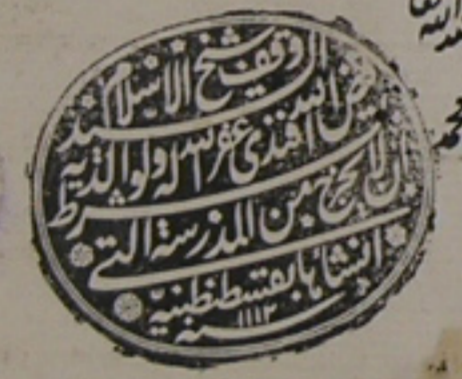 وقف شيخ الاسلام
السيد فيض الله افندى غفر الله له ولوالديه
بشرط ان لا يخرج من المدرسة التى
انشأها بقسطنطينية
سنه ١١١٢
محمد